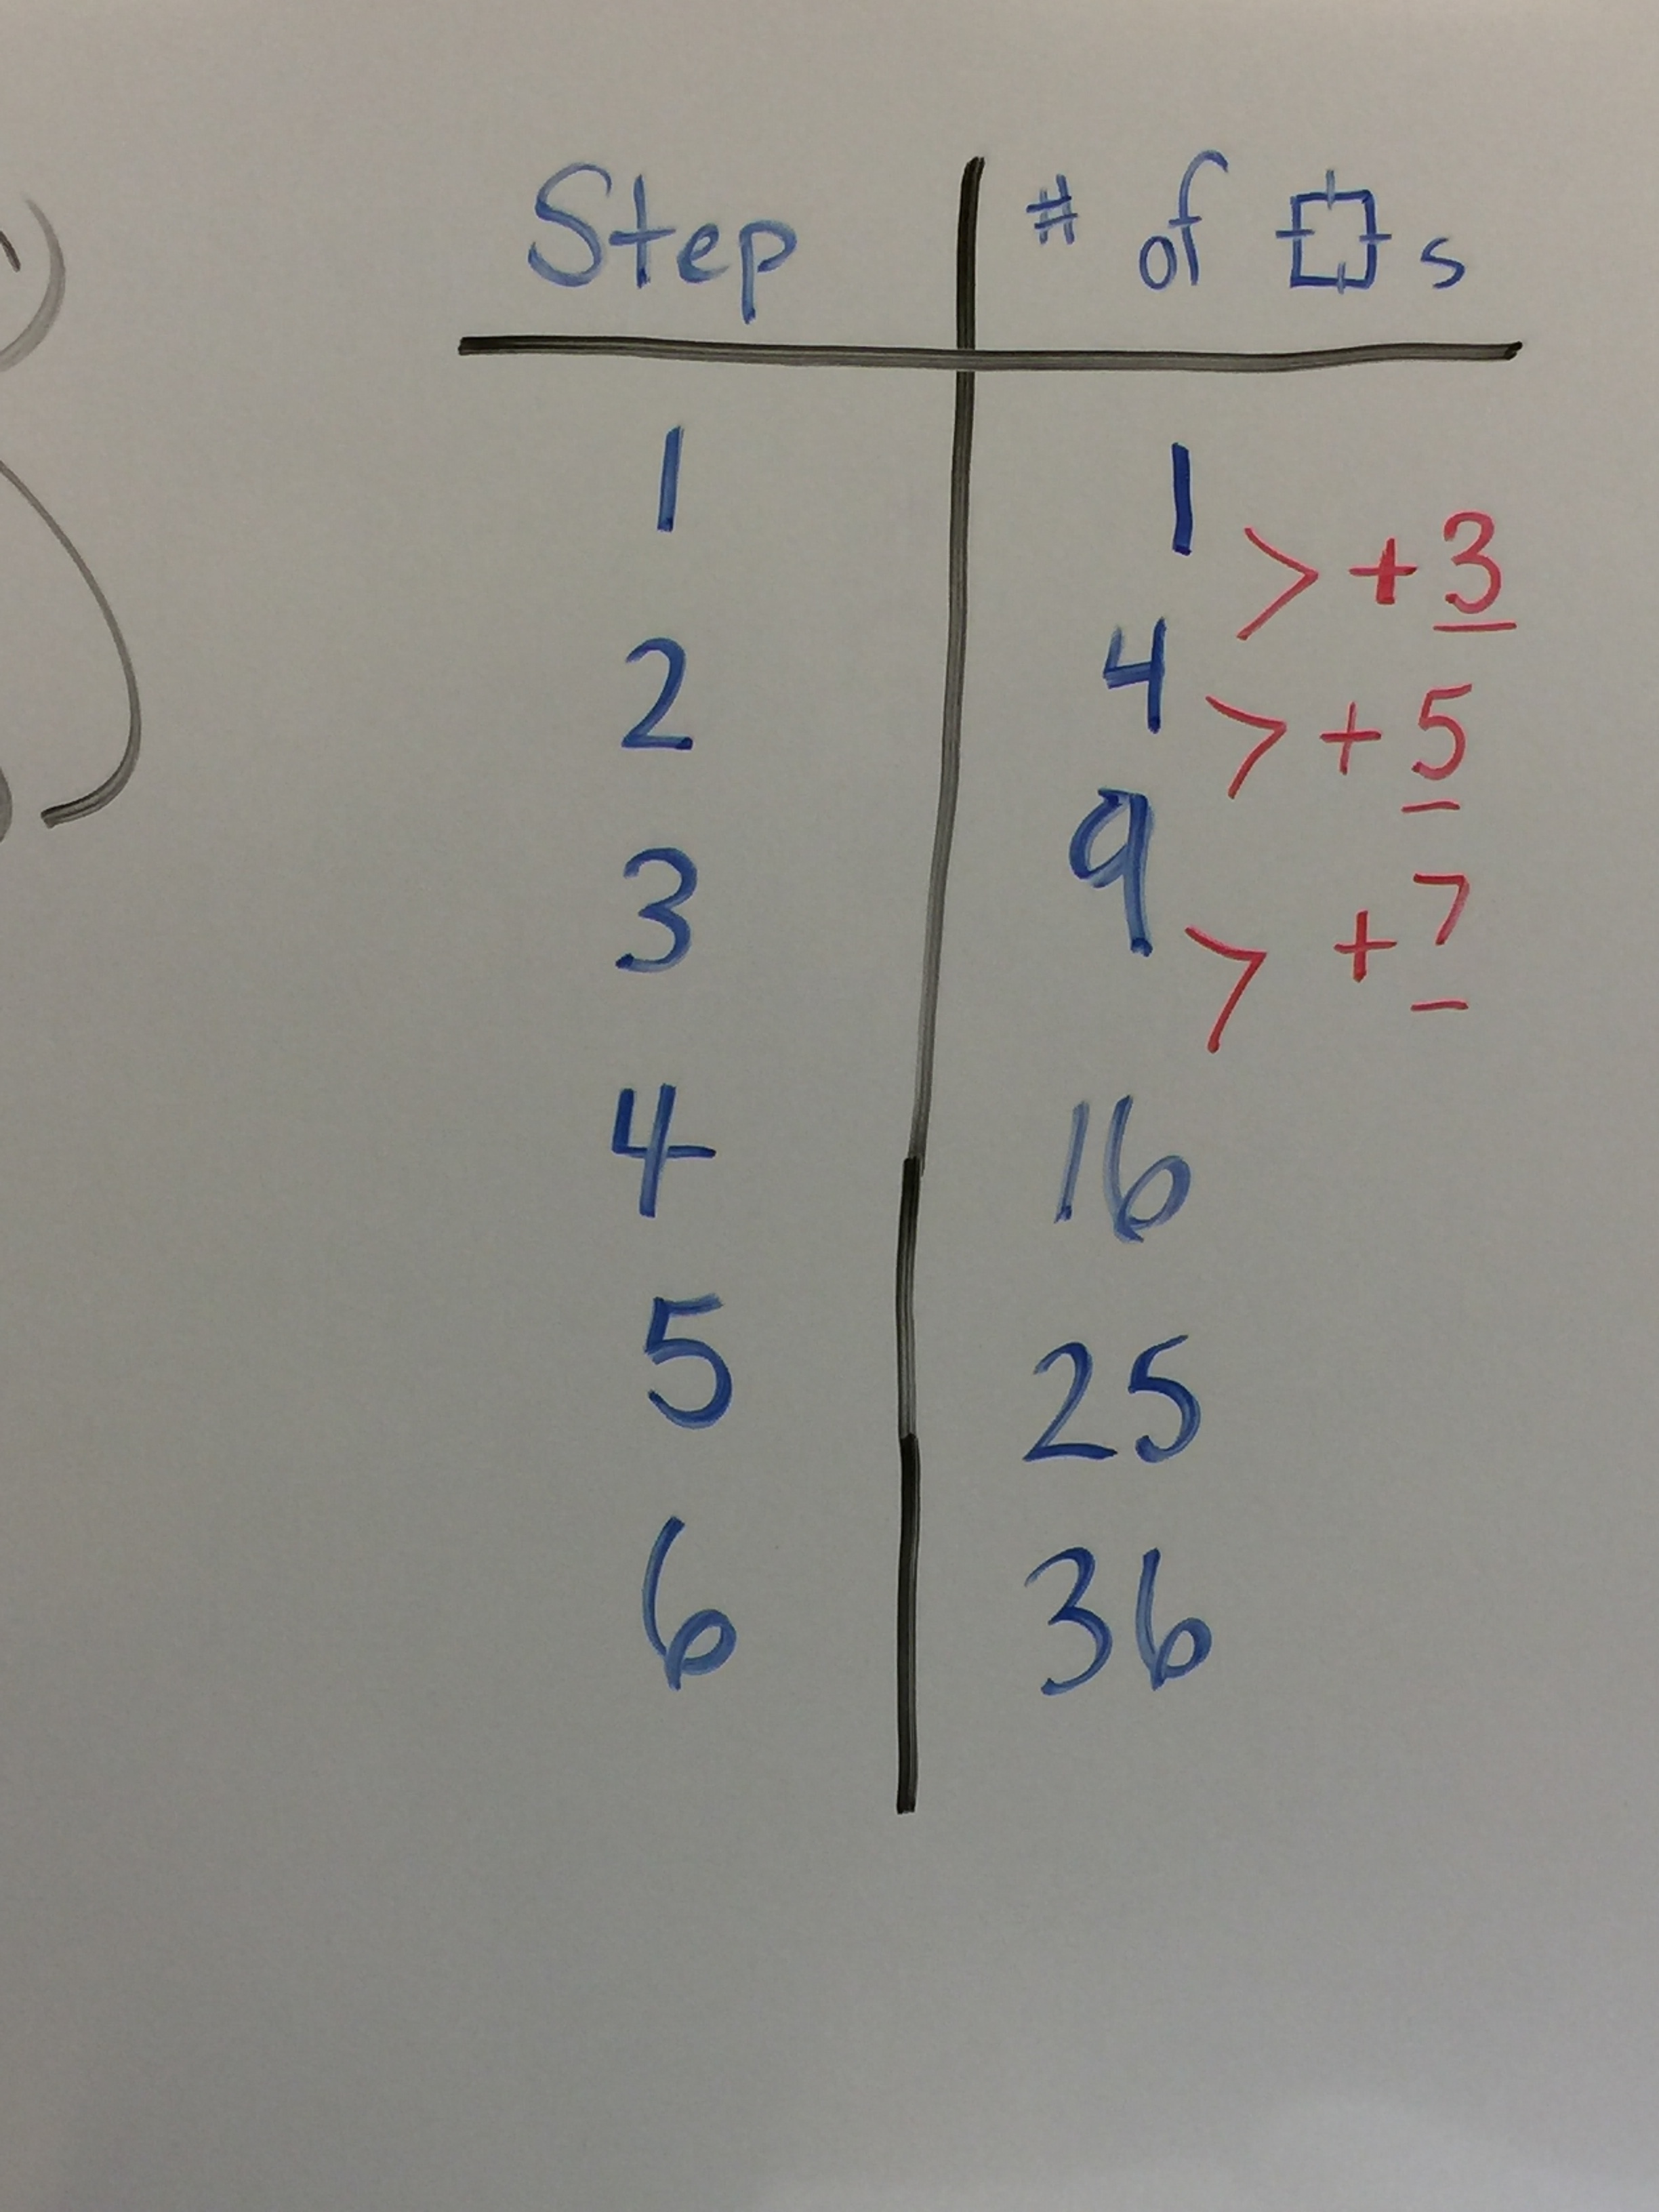 Step # of □s
1 1
> +3
2 4
> +5
3 9
> +7
4 16
5 25
6 36